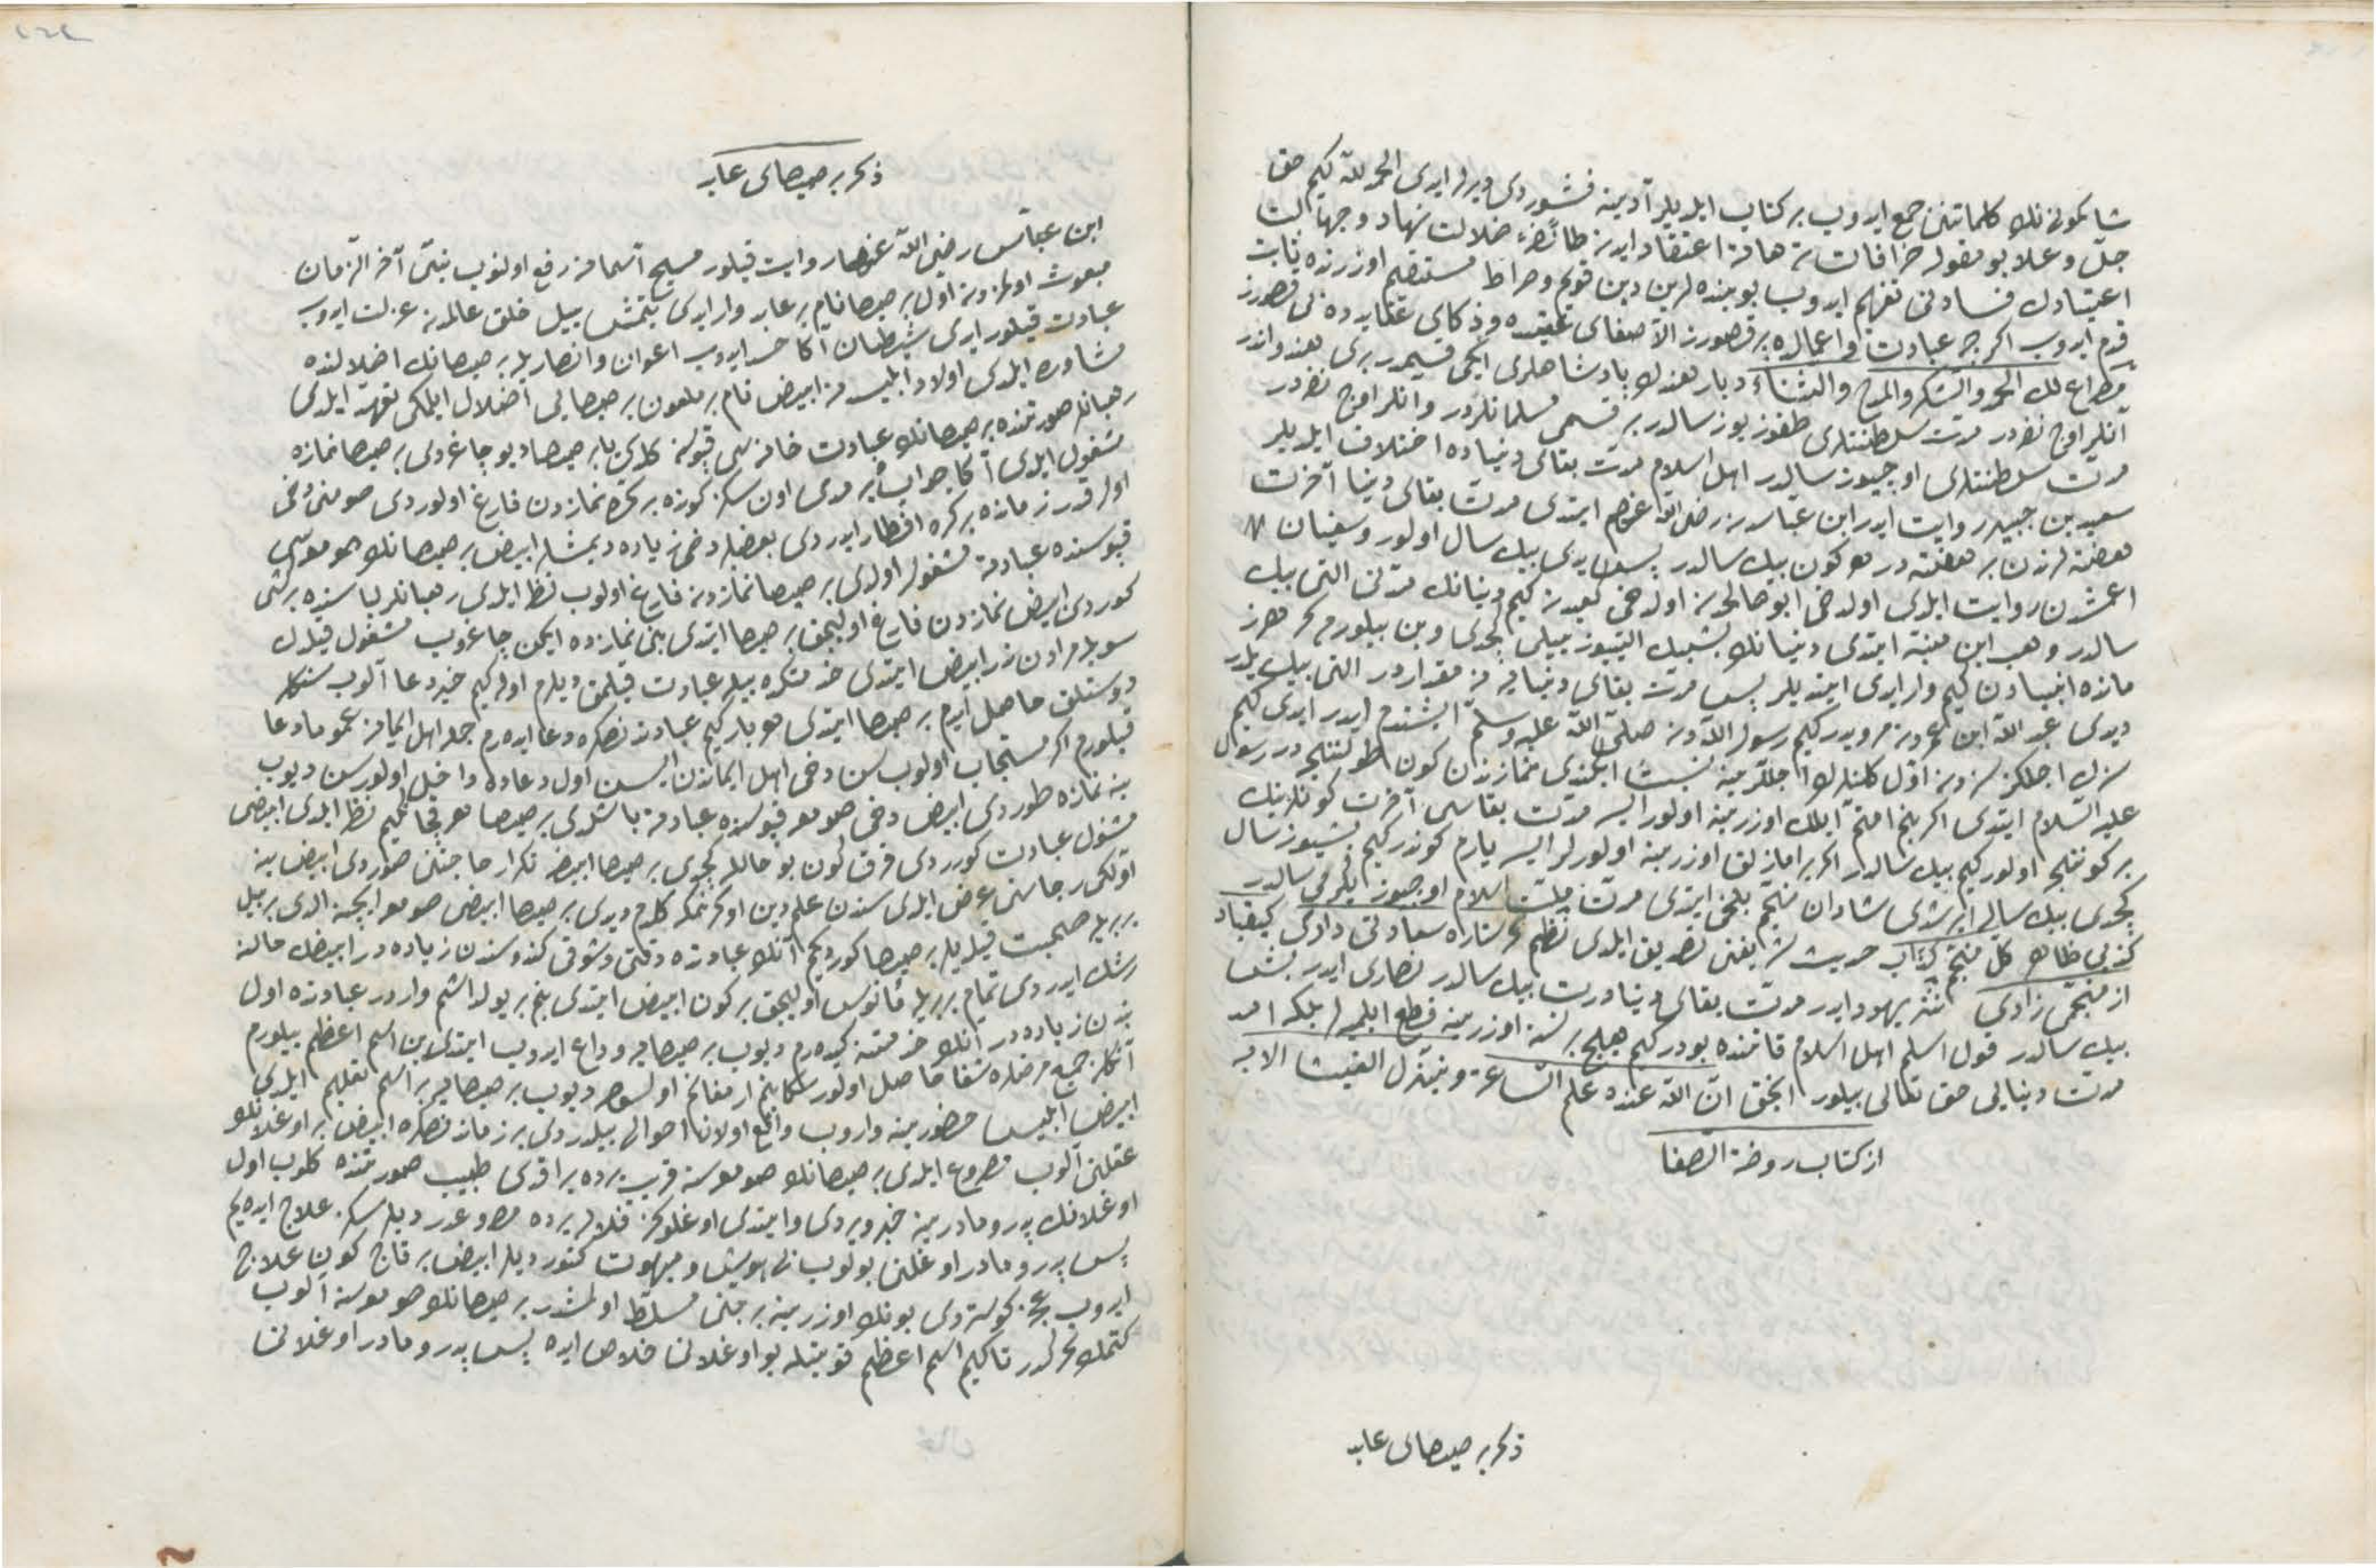 شاكمونینك كلماتنی جمع ایدوب بر كتاب ایدیلر آدینه فشوردی دیرلر ایدی الحمد لله كیم حق
جلّ وعلا بو مقوله خرافات وترهاته اعتقاد ایدن طائفهٔ ضلالت نهاد وجهالت
اعتیادك فسادنی تفهیم ایدوب بو بنده لرین دین قویم وصراط مستقیم اوزرنده ثابت
قدم ایدوب اكرچه عبادت واعمالده بر قصورز الا صفای عقیده وذكای عقایده بی قصورز
فلك الحمد والشكر والمدح والثناء دیار هندك پادشاهلری ایكی قسمدر بری هندولردر
آنلر اون نفردر مدت سلطنتلری طقوز یوز سالدر بر قسمی مسلمانلردر وآنلر اون نفردر
مدت سلطنتلری اوچیوز سالدر اهل اسلام مدت بقای دنیاده اختلاف ایدیلر
سعید بن جبیر روایت ایدر ابن عباسدن رضی الله عنهم ایتدی مدت بقای دنیا آخرت
هفته لرندن بر هفته در هر كون بیك سالدر پس یدی بیك سال اولور وسفیان
اعمشدن روایت ایلدی اولدخی ابو صالحدن اولدخی كعبدن كیم دنیانك مدتی التی بیك
سالدر وهب ابن منبه ایتدی دنیانك بشبیك التیوز ییلی كچدی وبن بیلورم كه هر
مانده انبیادن كیم وار ایدی ایتدیلر پس مدت بقای دنیا نه مقداردر التی بیك ییلدر
دیدی عبد الله ابن عمردن مرویدر كیم رسول اللهدن صلی الله علیه وسلم ایشتدم ایدر ایدی كیم
سزك اجلكز سزدن اول كلنلرك اجللرینه نسبت ایكندی نمازندن كون طولنجه در رسول
علیه السلام ایتدی اكر بنم امتم ایلك اوزرینه اولورلر ایسه مدت بقاسی آخرت كونلرینك
بر كوننجه اولور كیم بیك سالدر اكر یراماز لق اوزرینه اولورلر ایسه یارم كوندر كیم بشیوز سال
كچدی بیك سالی ایرشدی شاذان منجم بلخی ایتدی مدت ملت اسلام اوچیوز یكرمی سالدر
كذبی ظاهر كل منجم كذاب حدیث شریفنی تصدیق ایلدی نظم كر ستاره سعادتی دادی كیقباد
از منجمی زادی نثر یهود ایدر مدت بقای دنیا درت بیك سالدر نصاری ایدر بش
بیك سالدر قول اسلم اهل اسلام قاتنده بودر كیم هیچ بر نسنه اوزرینه قطع ایلمیه لر بلكه امد
مدت دنیایی حق تعالی بیلور انجق ان الله عنده علم الساعة وینزل الغیث الایه
از كتاب روضة الصفا
ذكر برصیصای عابد
ذكر برصیصای عابد
ابن عباس رضی الله عنهما روایت قیلور مسیح آسمانه رفع اولنوب نبیّ آخر الزمان
مبعوث اولمزدن اول برصیصا نام بر عابد وار ایدی یتمش ییل خلق عالمدن عزلت ایدوب
عبادت قیلور ایدی شیطان آكا حسد ایدوب اعوان وانصاریله برصیصانك اضلالنده
مشاوره ایلدی اولاد ابلیسدن ابیض نام بر ملعون برصیصایی اضلال ایلمكی تعهد ایلدی
رهبانلر صورتنده برصیصانك عبادت خانه سی قپوسنه كلدی یا برصیصا دیو چاغردی برصیصا نمازه
مشغول ایدی آكا جواب ویرمدی اون سكز كونده بر كره نمازدن فارغ اولوردی صومنی دخی
اول قدر زمانده بر كره افطار ایدردی بعضیلر دخی زیاده دیمشلر ابیض برصیصانك صومعه سی
قپوسنده عبادته مشغول اولدی برصیصا نمازدن فارغ اولوب نظر ایلدی رهبانلر لباسنده بر كشی
كوردی ابیض نمازدن فارغ اولیجق برصیصا ایتدی بنی نمازده ایكن چاغروب مشغول قیلدك
سویله مرادك ندر ابیض ایتدی خدمتكده بیله عبادت قیلمق دیلرم اوله كیم خیر دعا آلوب سنكله
دوستلق حاصل ایدم برصیصا ایتدی هر بار كیم عبادتدن صكره دعا ایده رم جمله اهل ایمانه عموما دعا
قیلورم اكر مستجاب اولوب سن دخی اهل ایماندن ایسن اول دعاده داخل اولورسن دیوب
ینه نمازه طوردی ابیض دخی صومعه قپوسنده عبادته باشلدی برصیصا هر قچان كیم نظر ایلدی ابیضی
مشغول عبادت كوردی قرق كون بو حالله كچدی برصیصا ابیضه تكرار حاجتنی صوردی ابیض ینه
اولكی رجاسنی عرض ایلدی سندن علم دین اوكرنمكه كلدم دیدی برصیصا ابیضی صومعه ایچنه الدی بر ییل
بربریله صحبت قیلدیلر برصیصا كوردی كیم آنك عبادتده دقتی وشوقی كندوسندن زیاده در ابیضك حالنه
رشك ایدردی تمام بربریله مأنوس اولیجق بر كون ابیض ایتدی بنم بر یولداشم واردر عبادتده اول
بندن زیاده در آنك خدمتنه كیده رم دیوب برصیصایه وداع ایدوب ایتدی بن اسم اعظم بیلورم
آنكله جمیع مرضلره شفا حاصل اولور سكا بنم ارمغانم اولسون دیوب برصیصایه بر اسم تعلیم ایلدی
ابیض ابلیس حضورینه واروب واقع اولان احوالی بیلدردی بر زماندن صكره ابیض بر اوغلانك
عقلنی آلوب مصروع ایلدی برصیصانك صومعه سنه قریب یرده براقدی طبیب صورتنده كلوب اول
اوغلانك پدر ومادرینه خبر ویردی وایتدی اوغلوكز فلان یرده مصروعدر دیلرسكز علاج ایده یم
پس پدر ومادر اوغلنی بولوب بی هوش ومبهوت كتوردیلر ابیض بر قاچ كون علاج
ایدوب عجز كوستردی بونك اوزرینه بر جنی مسلط اولمشدر برصیصانك صومعه سنه آلوب
كتمك كركدر تا كیم اسم اعظم قوتیله بو اوغلانی خلاص ایده پس پدر ومادر اوغلانی